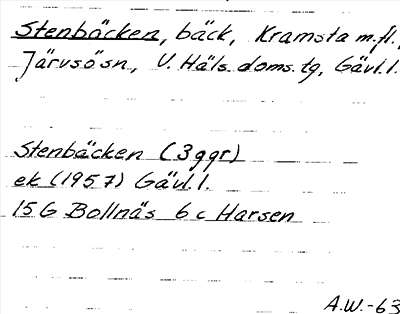 Stenbäcken, bäck, Kramsta m.fl.,
Järvsö sn, V. Häls. doms. tg, Gävl. l.
Stenbäcken (3 ggr)
ek (1957) Gävl. l.
15G Bollnäs 6c Harsen
A.W.-63